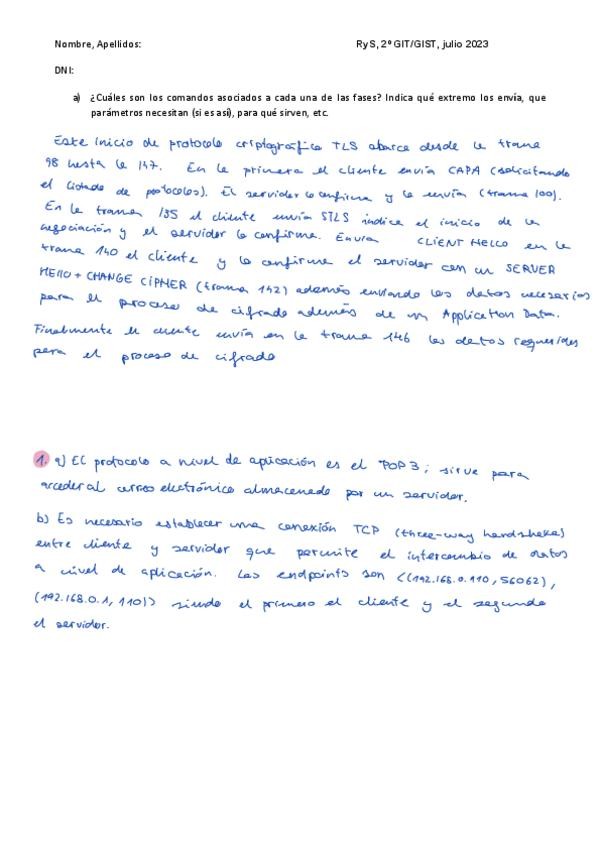 Nombre, Apellidos: RyS, 2º GIT/GIST, julio 2023
DNI:
a) ¿Cuáles son los comandos asociados a cada una de las fases? Indica qué extremo los envía, que
parámetros necesitan (si es así), para qué sirven, etc.
Este inicio de protocolo criptográfico TLS abarca desde la trama
98 hasta la 147. En la primera el cliente envía CAPA (solicitando
el listado de protocolos). El servidor lo confirma y lo envía (trama 100).
En la trama 135 el cliente envía STLS indica el inicio de la
negociación y el servidor lo confirma. Envía CLIENT HELLO en la
trama 140 el cliente y lo confirma el servidor con un SERVER
HELLO + CHANGE CIPHER (trama 142) además enviando los datos necesarios
para el proceso de cifrado además de un Application Data.
Finalmente el cliente envía en la trama 146 los datos requeridos
para el proceso de cifrado
1. a) El protocolo a nivel de aplicación es el POP3; sirve para
acceder al correo electrónico almacenado por un servidor.
b) Es necesario establecer una conexión TCP (three-way handshake)
entre cliente y servidor que permite el intercambio de datos
a nivel de aplicación. Los endpoints son <(192.168.0.110, 56062),
(192.168.0.1, 110)> siendo el primero el cliente y el segundo
el servidor.